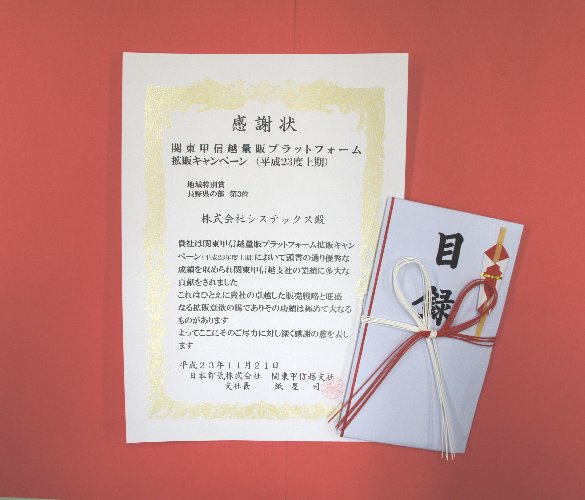 感謝状
関東甲信越量販プラットフォーム
拡販キャンペーン（平成23度上期）
地域特別賞
長野県の部 第3位
株式会社システックス殿
貴社は関東甲信越量販プラットフォーム拡販キャン
ペーン(平成23年度上期)において頭書の通り優秀な
成績を収められ関東甲信越支社の業績に多大な
貢献をされました
これはひとえに貴社の卓越した販売戦略と旺盛
なる拡販意欲の賜でありその功績は極めて大なる
ものがあります
よってここにそのご尽力に対し深く感謝の意を表し
ます
平成23年11月21日
日本電気株式会社 関東甲信越支社
支社長 紙屋 司
目録